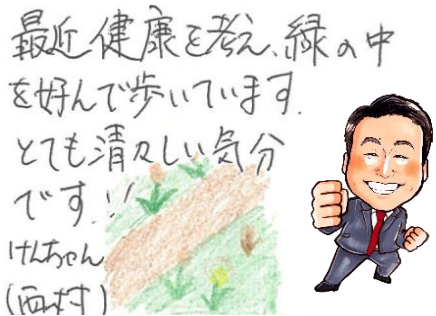 最近健康を考え、緑の中
を好んで歩いています。
とても清々しい気分
です!!
けんちゃん
(西村)